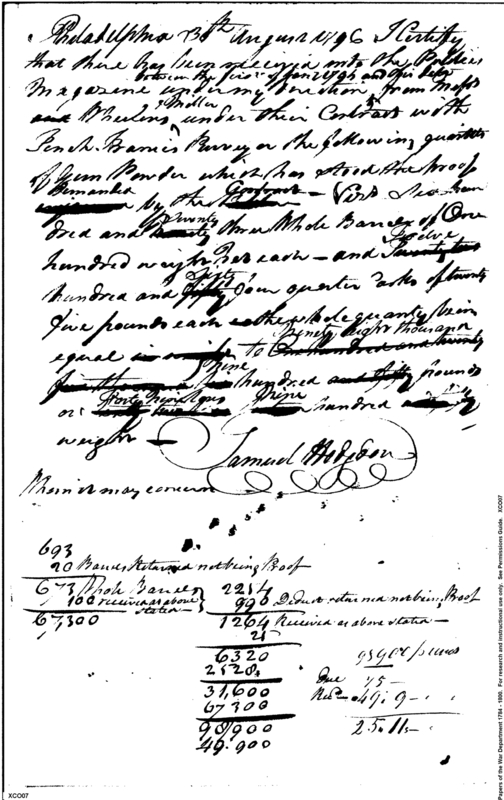 Philadelphia 13th August 1796 I Certify
that there has been received into the Public
between the first of Jany 1796 and this date
Magazine under my direction from Messrs
& Miller
and Wheelens under their Contract with
Tench Francis Purveyor the following quantities
of Gun Powder which has stood the proof
demanded Contract
by the Vizt Six hun
Seventy
dred and three Whole Barrels of One
Twelve
hundred weight each and
Sixty
hundred and fifty four quarter Casks of twenty
five pounds each the whole quantity being
Ninety eight thousand
equal to One hundred and twenty
Nine
hundred and fifty pounds
Forty Nine Tons Nine
or hundred
weight
Samuel Hodgdon
Whom it may concern
693
20 Barrels Returned not being Proof
673 Whole Barrels
100 received as above stated
67300
2254
990 Deduct returned not being Proof
1264 Received as above stated
25
6320
2528
31,600
67300
98900
49.900
Due 75
Recd 49.9
25.11
XCO07
Papers of the War Department 1784 - 1800. For research and instructional use only. See Permissions Guide. XCO07